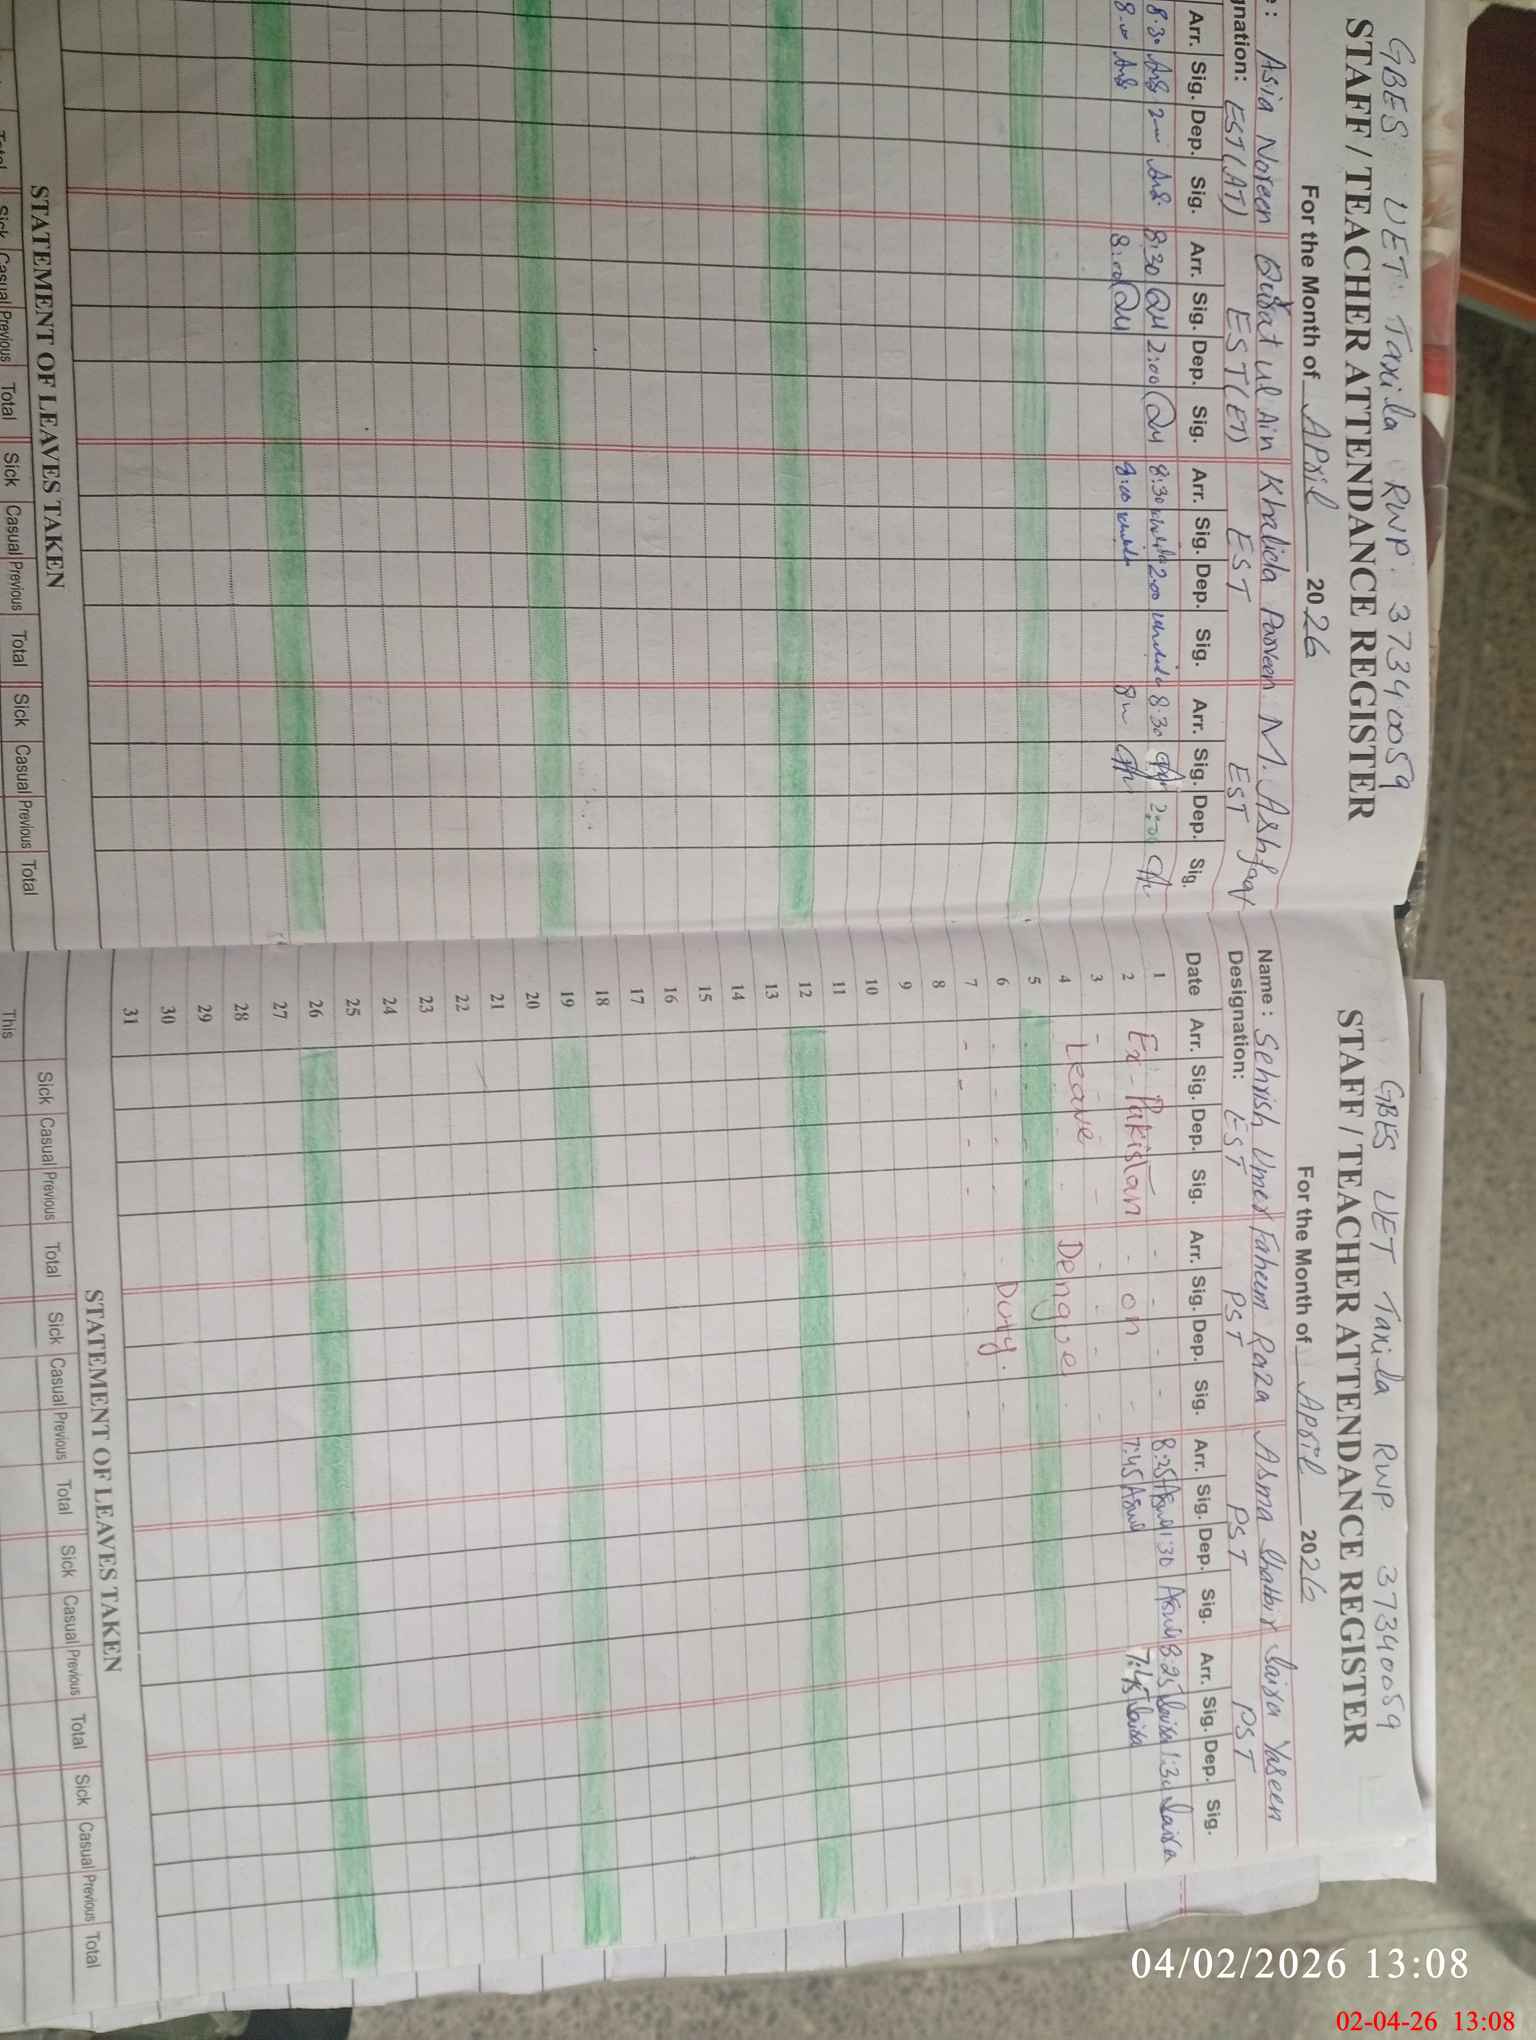 GBES UET Taxila RWP. 37340059
STAFF / TEACHER ATTENDANCE REGISTER
For the Month of April 2026
e : Asia Noreen Qurat ul Ain Khalida Parveen M. Ashfaq
gnation: EST(AT) EST(ET) EST EST
Arr. Sig. Dep. Sig. Arr. Sig. Dep. Sig. Arr. Sig. Dep. Sig. Arr. Sig. Dep. Sig.
8:30 8:30 2:00 8:30 2:00 8 30 2:00
8:00 8:00
STATEMENT OF LEAVES TAKEN
Total Sick Casual Previous Total Sick Casual Previous Total Sick Casual Previous Total
GBES UET Taxila RWP 37340059
STAFF / TEACHER ATTENDANCE REGISTER
For the Month of April 2026
Name : Sehrish Umer Faheem Raza Asma Shabbir Saira Yaseen
Designation: EST PST PST PST
Date Arr. Sig. Dep. Sig. Arr. Sig. Dep. Sig. Arr. Sig. Dep. Sig. Arr. Sig. Dep. Sig.
1 - - - - 8:25 Asma 1:30 Asma 8:25 Saira 1:30 Saira
2 Ex - Pakistan - on - 7:45 Asma 7:45 Saira
3
4 Leave Dengue
5
6 Duty.
7
8
9
10
11
12
13
14
15
16
17
18
19
20
21
22
23
24
25
26
27
28
29
30
31
STATEMENT OF LEAVES TAKEN
This Sick Casual Previous Total Sick Casual Previous Total Sick Casual Previous Total Sick Casual Previous Total
04/02/2026 13:08
02-04-26 13:08